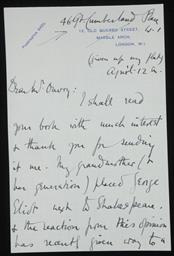 46 Gt. Cumberland Place
W.1
12, OLD QUEBEC STREET,
MARBLE ARCH,
LONDON, W.1
(Given up my flat)
April 12th.
Dear Mr
I shall read
your book with much interest
& thank you for sending
it me. My grandmother (&
her generation) placed George
Eliot next to Shakespeare.
& the reaction from this opinion
has recently given way to a